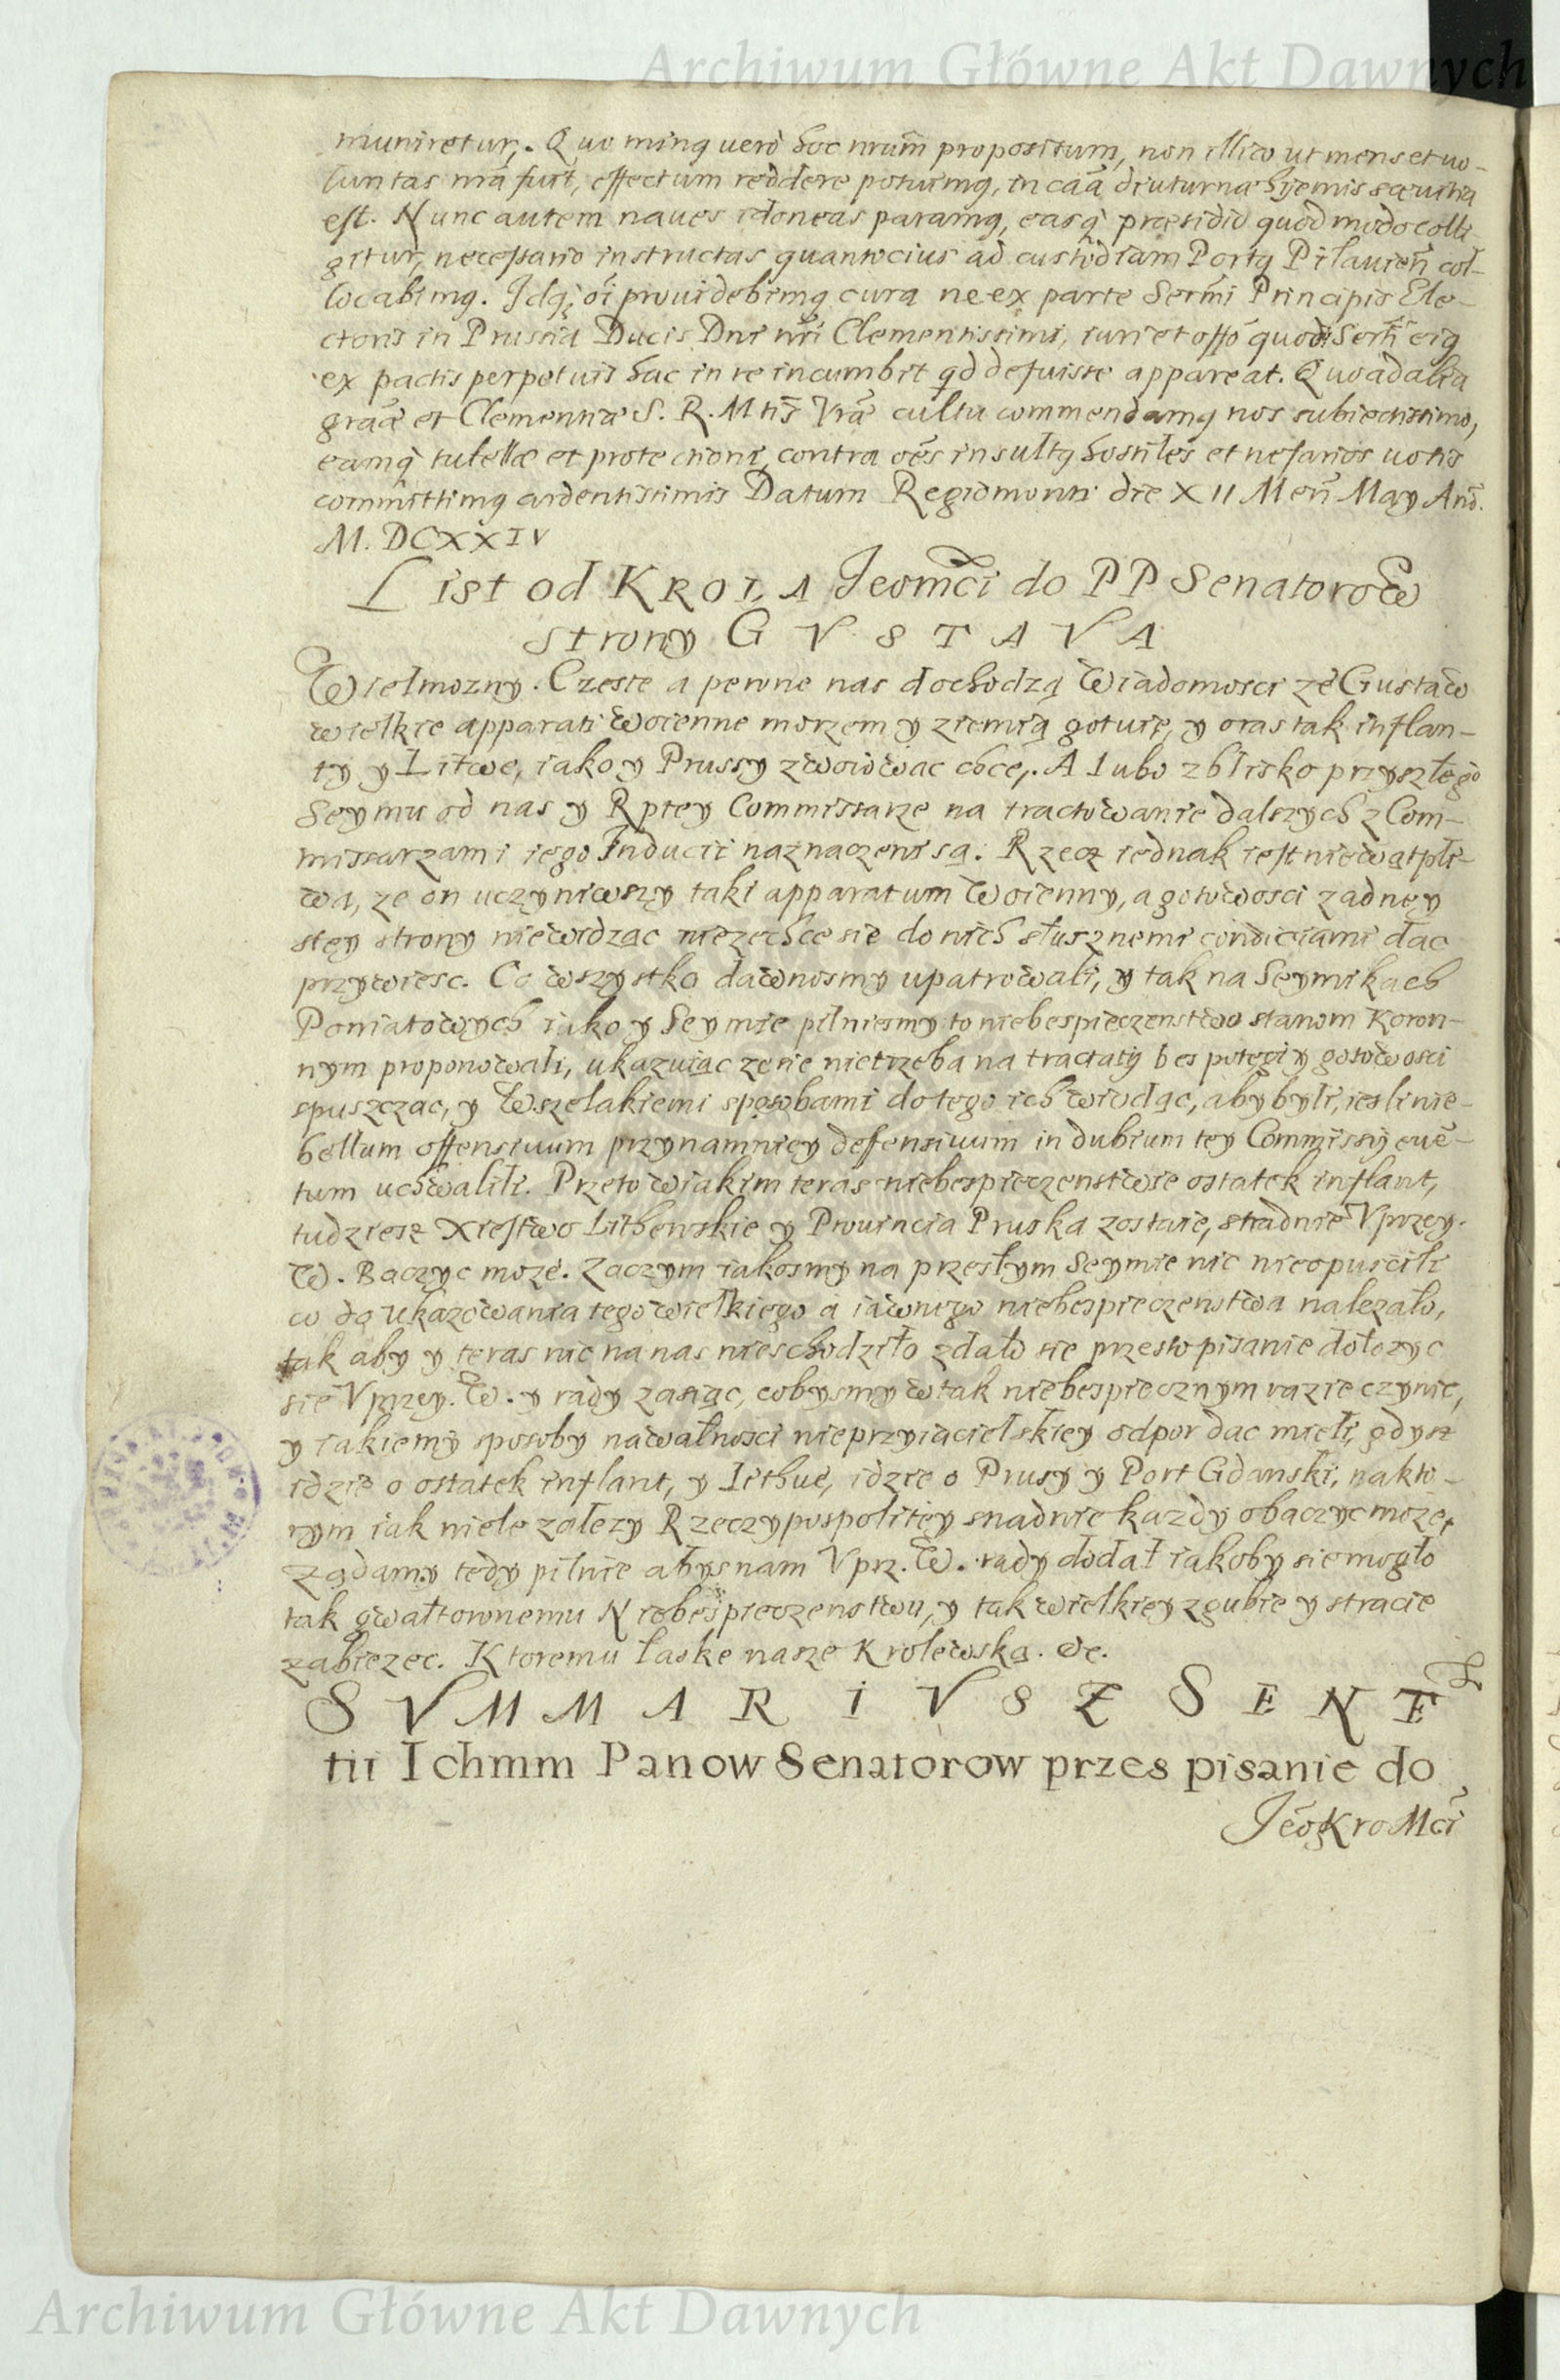 Archiwum Główne Akt Dawnych
muniretur,. Quo minq vero hoc nrum̄ propositum, non illico ut mens et uo-
luntas nrā fuit, effectum reddere potuimq, in caā diuturnæ hyemis sæuitia
est. Nunc autem naues idoneas paramq, easq præsidio quod modo colli-
gitur, necessario instructas quantocius ad custodiam Portq Pilauien̄ col-
locabimq. Idq; oī prouidebimq cura ne ex parte Sermi Principis Ele-
ctoris in Prussia Ducis Dni nri Clementissimi, iuri et offo quod Serti eiq
ex pactis perpetuis hac in re incumbit qd defuisse appareat. Quo ad alia
graæ et Clementiæ S. R. Mtis Vræ cultu commendamq nos subiectissimo,
eamq tutellæ et protectioni, contra oēs insultq hostiles et nefarios uotis
committimq ardentissimis Datum Regiomonti die XII Men̄ May An̄o.
M. DCXXIV
List od KROLA Jeomci do PP Senatorow
strony GVSTAVA
Wielmozny. Czeste a pewne nas dochodzą Wiadomosci ze Gustaw
wielkie apparati woienne morzem y ziemią gotuie, y oras tak inflan-
ty y Litwe, iako y Prussy zwoiowac chce,. A lubo z blisko przyszłego
Seymu od nas y Rptey Commissarze na tractowanie dalszych z Com-
missarzami iego Inducii naznaczeni są. Rzecz iednak iest niewątpli-
wa, ze on uczyniwszy taki apparatum Woienny, a gotowosci zadney
stey strony niewidząc niezechce sie do nich słusznemi condiciami dac
przywiesc. Co wszystko dawnosmy upatrowali, y tak na Seymikach
Poniatowych iako y Seymie pilniesmy to niebespieczenstwo stanom Koron-
nym proponowali, ukazuiąc ze sie nietrzeba na tractaty bes potegi y gotowosci
spuszczac, y Wszelakiemi sposobami do tego ich wiodąc, aby byli, iesli nie-
bellum offensiuum przynamniey defensiuum in dubium tey Commissij euē-
tum uchwalili. Przeto w iakim teras niebespieczenstwie ostatek inflant,
tudziesz Xiestwo Lithewskie y Prouincia Pruska zostaie, snadnie Vprzey.
W. Baczyc moze. Zaczym iakosmy na przesłym Seymie nic nieopuscili
co do ukazowania tego wielkiego a iawnego niebespieczenstwa nalezało,
tak aby y teras nic na nas nieschodziło zdało sie przesto pisanie dołozyc
sie Vprzey. W. y rady zasiąc, cobysmy w tak niebespiecznym razie czynic,
y iakiemi sposoby nawałnosci nieprzyiacielskiey odpor dac mieli, gdysz
idzie o ostatek inflant, y Lithue, idzie o Prusy y Port Gdanski, na kto-
rym iak wiele zalezy Rzeczypospolitey snadnie kazdy obaczyc moze,
Ządamy tedy pilnie abys nam Vprz. W. rady dodał iakoby sie mogło
tak gwałtownemu Niebespieczenstwu, y tak wielkiey zgubie y stracie
zabiezec. Ktoremu łaske nasze Krolewską. &c.
SVMMARIVSZ SENTE
tii Ichmm Panow Senatorow przes pisanie do
Jeo Kro Mci
Archiwum Główne Akt Dawnych